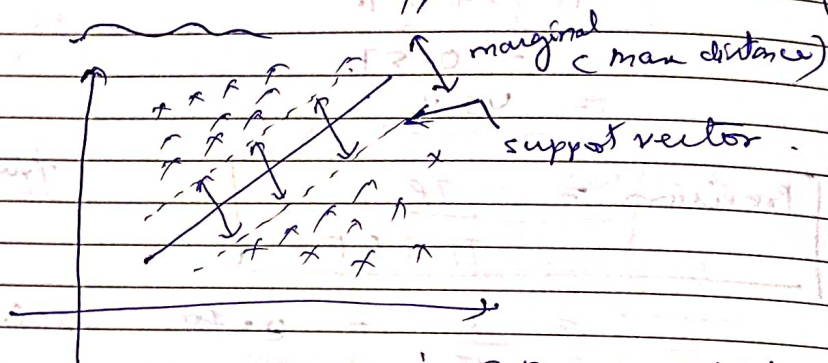 marginal
( max distance)
support vector .